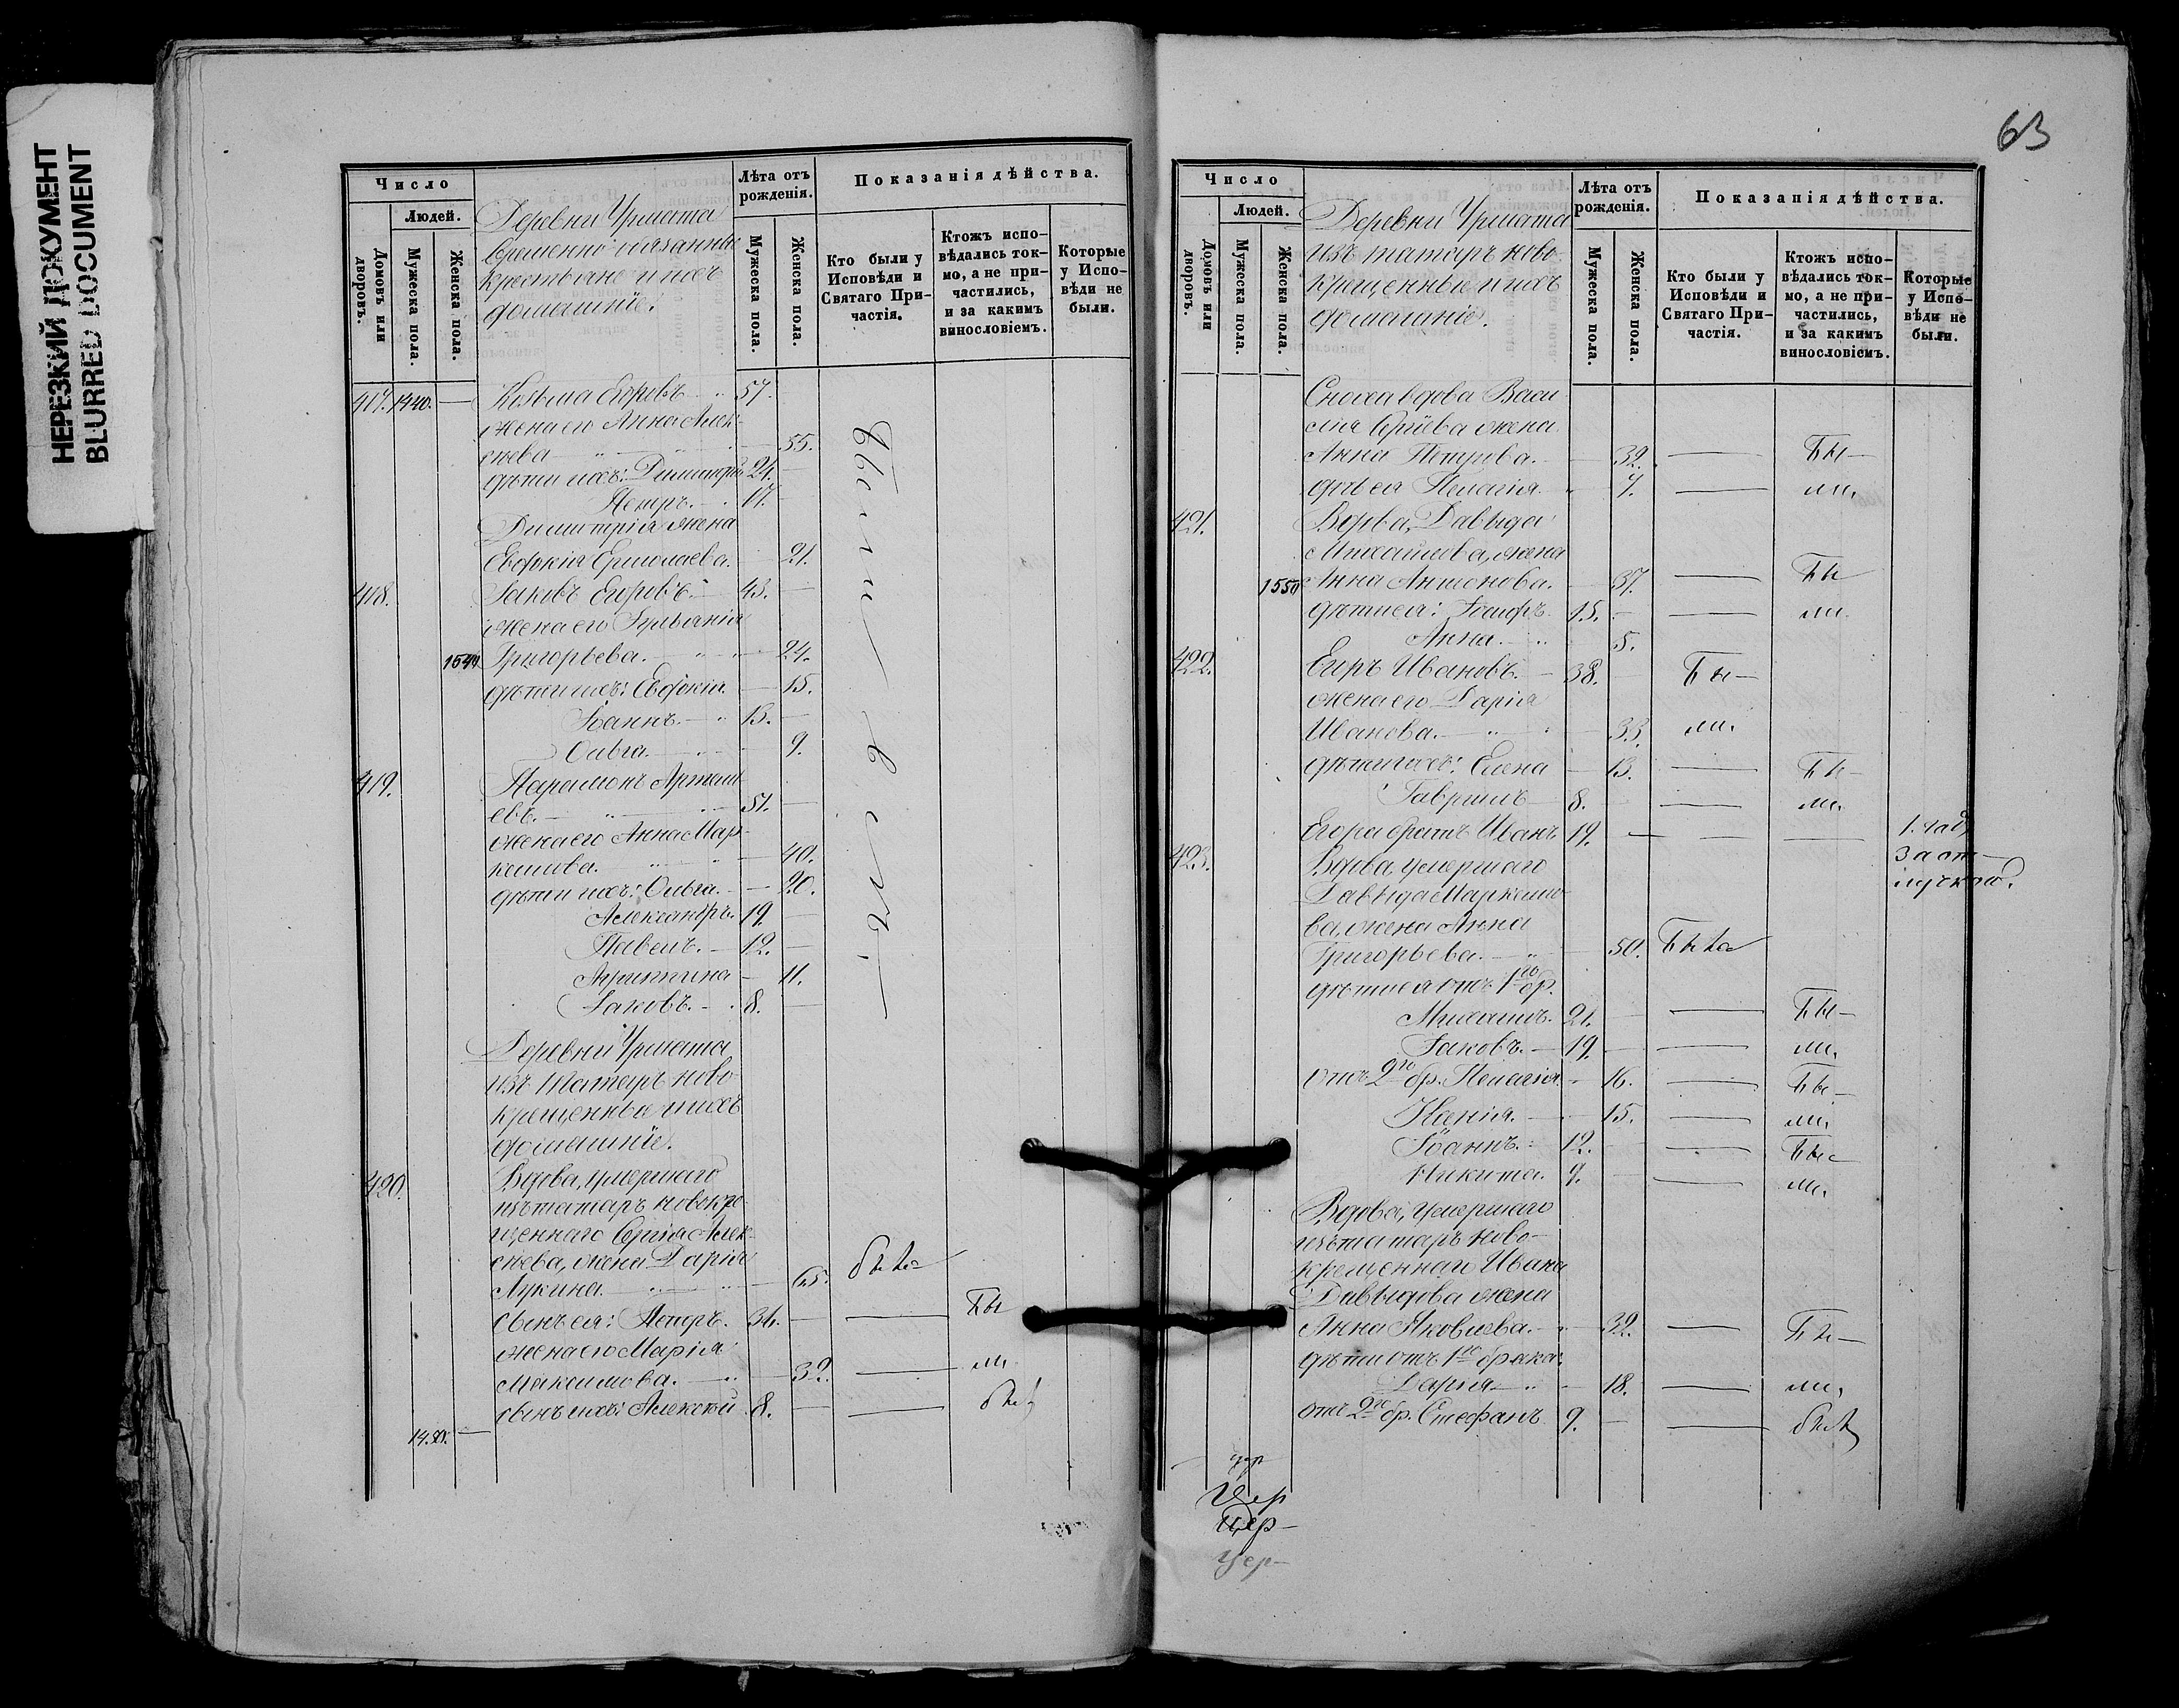 НЕРЕЗКИЙ ДОКУМЕНТ
BLURRED DOCUMENT
Число
Людей.
Домовъ или дворовъ.
Мужеска пола.
Женска пола.
Деревни Урмата
временно-обязанные
крестьяне и ихъ
домашніе.
Лѣта отъ рожденія.
Мужеска пола.
Женска пола.
Показанія дѣйства.
Кто были у Исповѣди и Святаго Причастія.
Ктожъ исповѣдались токмо, а не причастились, и за какимъ винословіемъ.
Которые у Исповѣди не были.
417. 1440. — Козьма Егоровъ 57.
жена его Анна Алек-
сѣева 55.
дѣти ихъ: Димитрій 24. —
Петръ. 17. —
Димитрія жена
Евдокія Ермолаева. 21.
418. Іаковъ Егоровъ. 43. —
жена его Іульянія
1540 Григорьева. 24.
дѣти ихъ: Евдокія. — 15.
Іоаннъ. — 13. —
Ольга. 9.
419. Парамонъ Артемь-
евъ. 51. —
жена его Анна Мар-
келова. 40.
дѣти ихъ: Ольга. — 20.
Александръ. 19. —
Павелъ. — 12. —
Агрипина — 11.
Іаковъ. — 8. —
были все
Деревни Урмата
изъ татаръ ново-
крещенные и ихъ
домашніе.
420. Вдова, умершаго
изъ татаръ новокре-
щеннаго Сергія Алек-
сѣева, жена Дарія
Лукина. 65. была
сынъ ея: Петръ. 34. — — Бы
жена его Марія
Максимова. — 32. — ли
сынъ ихъ: Алексѣй 8. — — былъ
1480. —
63
Число
Людей.
Домовъ или дворовъ.
Мужеска пола.
Женска пола.
Деревни Урмата
изъ татаръ ново-
крещенные и ихъ
домашніе.
Лѣта отъ рожденія.
Мужеска пола.
Женска пола.
Показанія дѣйства.
Кто были у Исповѣди и Святаго Причастія.
Ктожъ исповѣдались токмо, а не причастились, и за какимъ винословіемъ.
Которые у Исповѣди не были.
Сноха вдова Васи-
лія Сергіева жена
Анна Петрова. — 32. — Бы—
дочь ея Пелагія. 7. — ли.
421. Вдова, Давыда
Михайлова, жена
1550 Анна Антонова. — 37. — Бы
дѣти ея: 15. — — ли.
Анна. — 5.
422. Егоръ Ивановъ. — 38. — Бы—
жена его Дарія
Иванова. — 33. ли.
дѣти ихъ: Елена — 13. — Бы—
Гавріилъ 8. — — ли.
Егора братъ Иванъ 19. — — — 1. годъ
за от-
лучкою.
423. Вдова, умершаго
Давыда Маркело-
ва, жена Анна
Григорьева. — 50. Была
дѣти ея отъ 1го бр.
Михаилъ. 21. — — Бы—
Іаковъ. — 19. — — ли.
отъ 2го бр. Пелагія. — 16. — Бы—
Ксенія. — 15. — ли.
Іоаннъ. 12. — — Бы—
Никита. 7. — — ли.
Вдова, умершаго
изъ татаръ ново-
крещеннаго Ивана
Давыдова жена
Анна Яковлева. — 32. — Бы—
дѣти отъ 1го брака:
Дарія — 18. — ли.
отъ 2го бр. Стефанъ 9. — — былъ
Цер
Цер—
Цер—